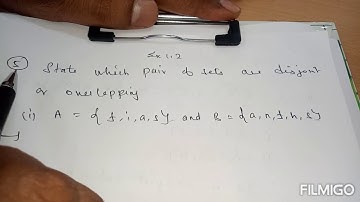 Ex 1.2
(5) State which pair of sets are disjoint
or overlapping
(i) A = {f, i, a, s} and B = {a, n, f, h, s}
FILMIGO